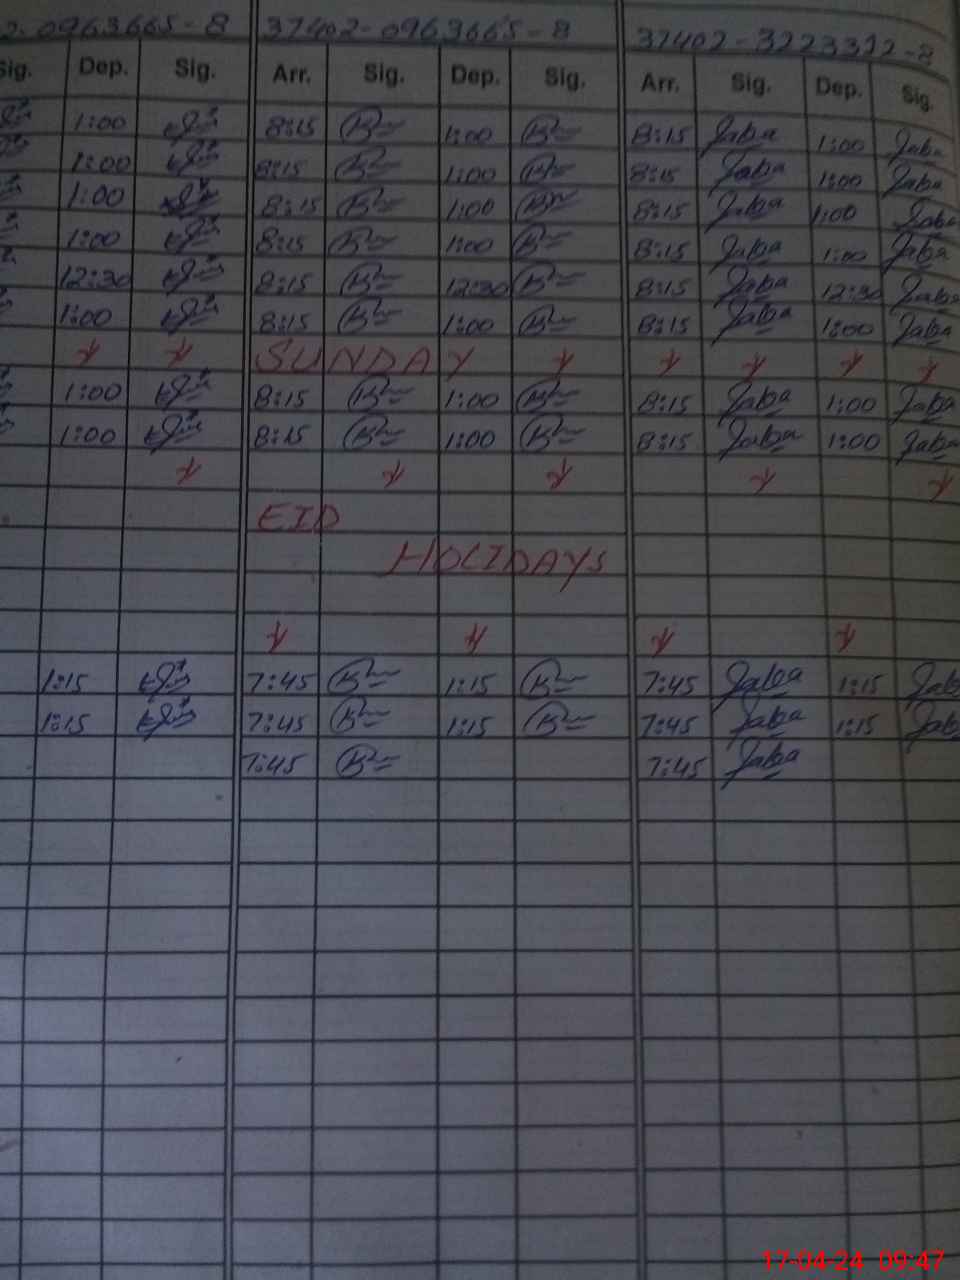 2-0963665-8 37402-0963665-8 37402-3223322-8
Sig. Dep. Sig. Arr. Sig. Dep. Sig. Arr. Sig. Dep. Sig.
1:00 8:15 1:00 8:15 Jaba 1:00 Jaba
1:00 8:15 1:00 8:15 Jaba 1:00 Jaba
1:00 8:15 1:00 8:15 Jaba 1:00 Jaba
1:00 8:15 1:00 8:15 Jaba 1:00 Jaba
12:30 8:15 12:30 8:15 Jaba 12:30 Jaba
1:00 8:15 1:00 8:15 Jaba 1:00 Jaba
SUNDAY
1:00 8:15 1:00 8:15 Jaba 1:00 Jaba
1:00 8:15 1:00 8:15 Jaba 1:00 Jaba
EID
HOLIDAYS
1:15 7:45 1:15 7:45 Jaba 1:15 Jab
1:15 7:45 1:15 7:45 Jaba 1:15 Jab
7:45 7:45 Jaba
17-04-24 09:47